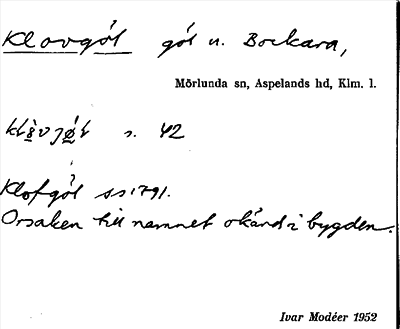 Klovgöl göl n. Bockara,
Mörlunda sn, Aspelands hd, Klm. l.
s. 42
Klofgöl ss 1791.
Orsaken till namnet okänd i bygden.
Ivar Modéer 1952